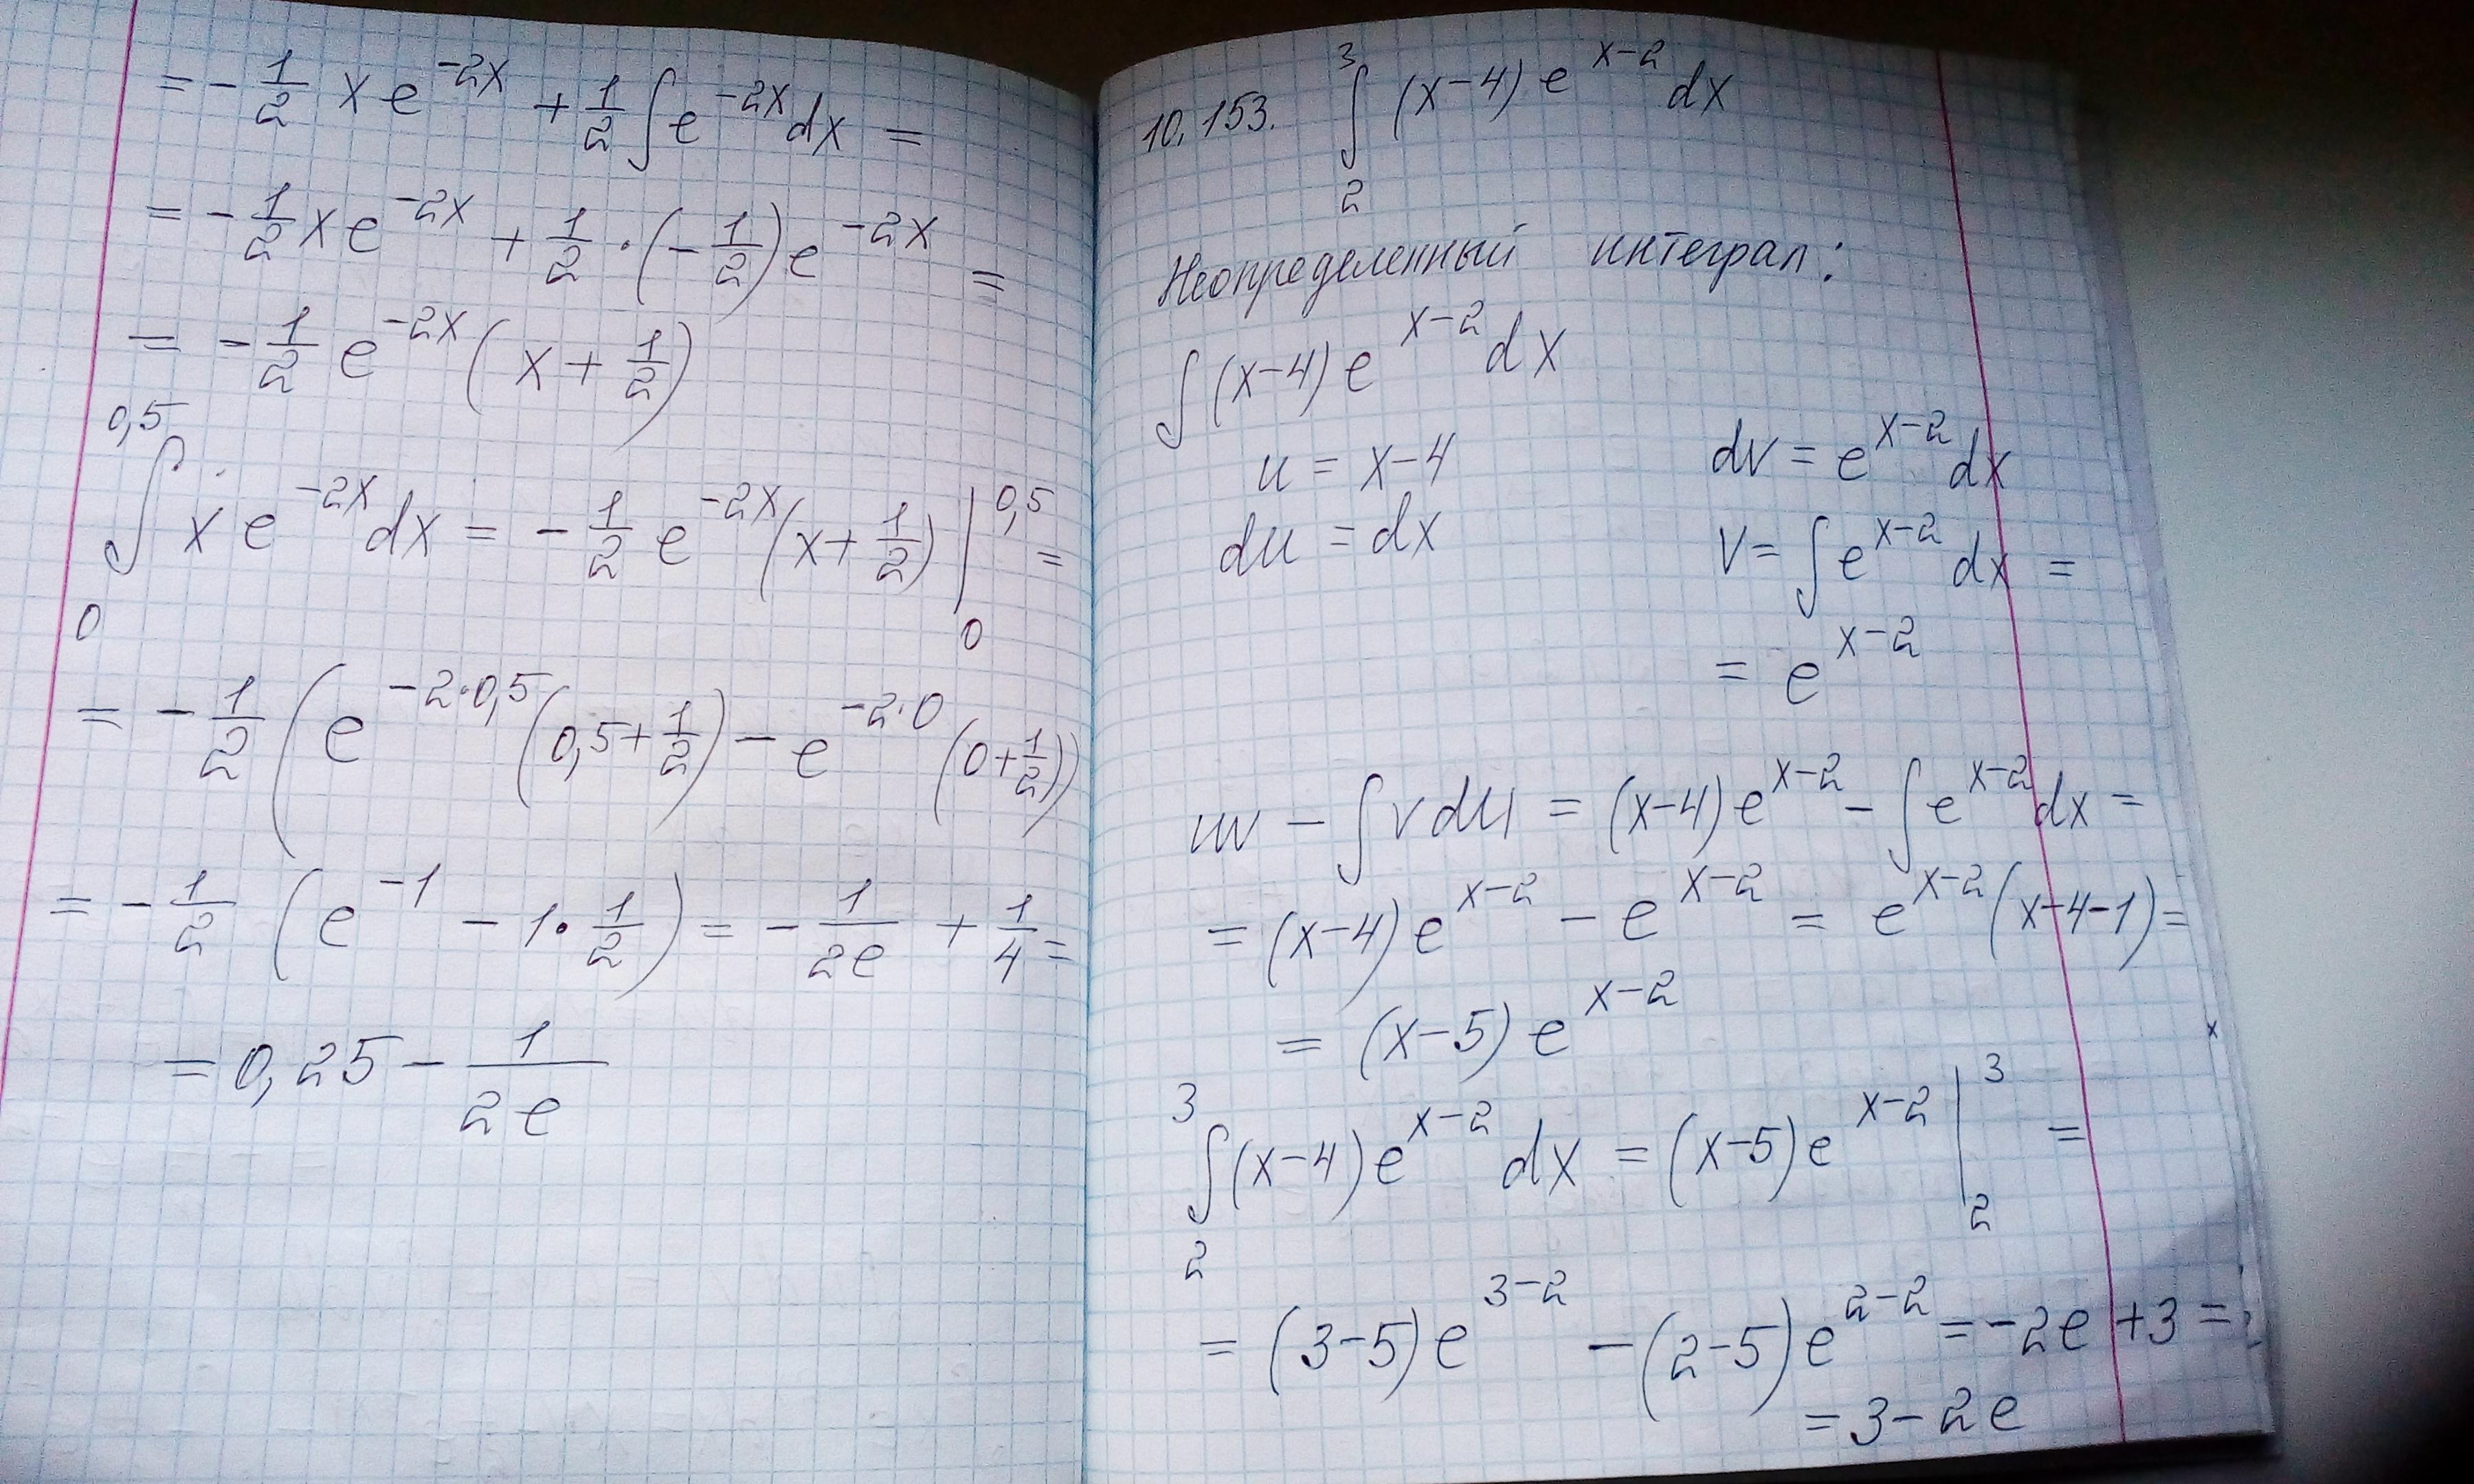 = - 1/2 x e^{-2x} + 1/2 ∫ e^{-2x} dx =
= - 1/2 x e^{-2x} + 1/2 · (- 1/2) e^{-2x} =
= - 1/2 e^{-2x} (x + 1/2)
∫_0^{0,5} x e^{-2x} dx = - 1/2 e^{-2x} (x + 1/2) |_0^{0,5} =
= - 1/2 (e^{-2·0,5} (0,5 + 1/2) - e^{-2·0} (0 + 1/2))
= - 1/2 (e^{-1} - 1 · 1/2) = - 1/(2e) + 1/4 =
= 0,25 - 1/(2e)
10.153. ∫_2^3 (x-4) e^{x-2} dx
Неопределенный интеграл:
∫ (x-4) e^{x-2} dx
u = x-4 dv = e^{x-2} dx
du = dx v = ∫ e^{x-2} dx =
= e^{x-2}
uv - ∫ v du = (x-4) e^{x-2} - ∫ e^{x-2} dx =
= (x-4) e^{x-2} - e^{x-2} = e^{x-2} (x-4-1) =
= (x-5) e^{x-2}
∫_2^3 (x-4) e^{x-2} dx = (x-5) e^{x-2} |_2^3 =
= (3-5) e^{3-2} - (2-5) e^{2-2} = -2e + 3 =
= 3 - 2e